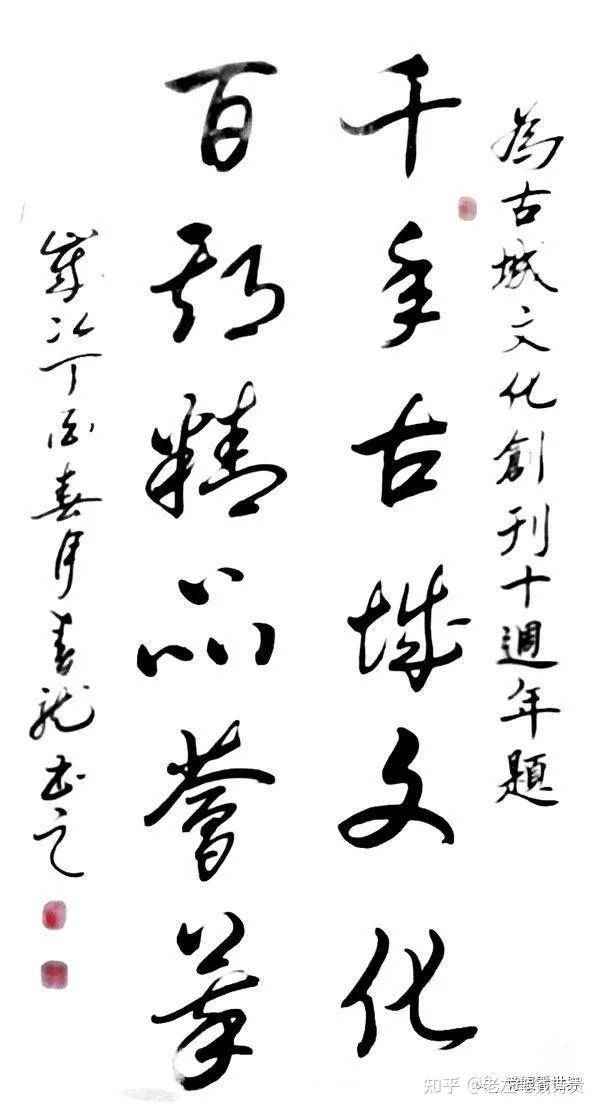 為古城文化創刊十週年題
千年古城文化
百期精品薈萃
歲次丁酉春月春龍书之
知乎 @老左